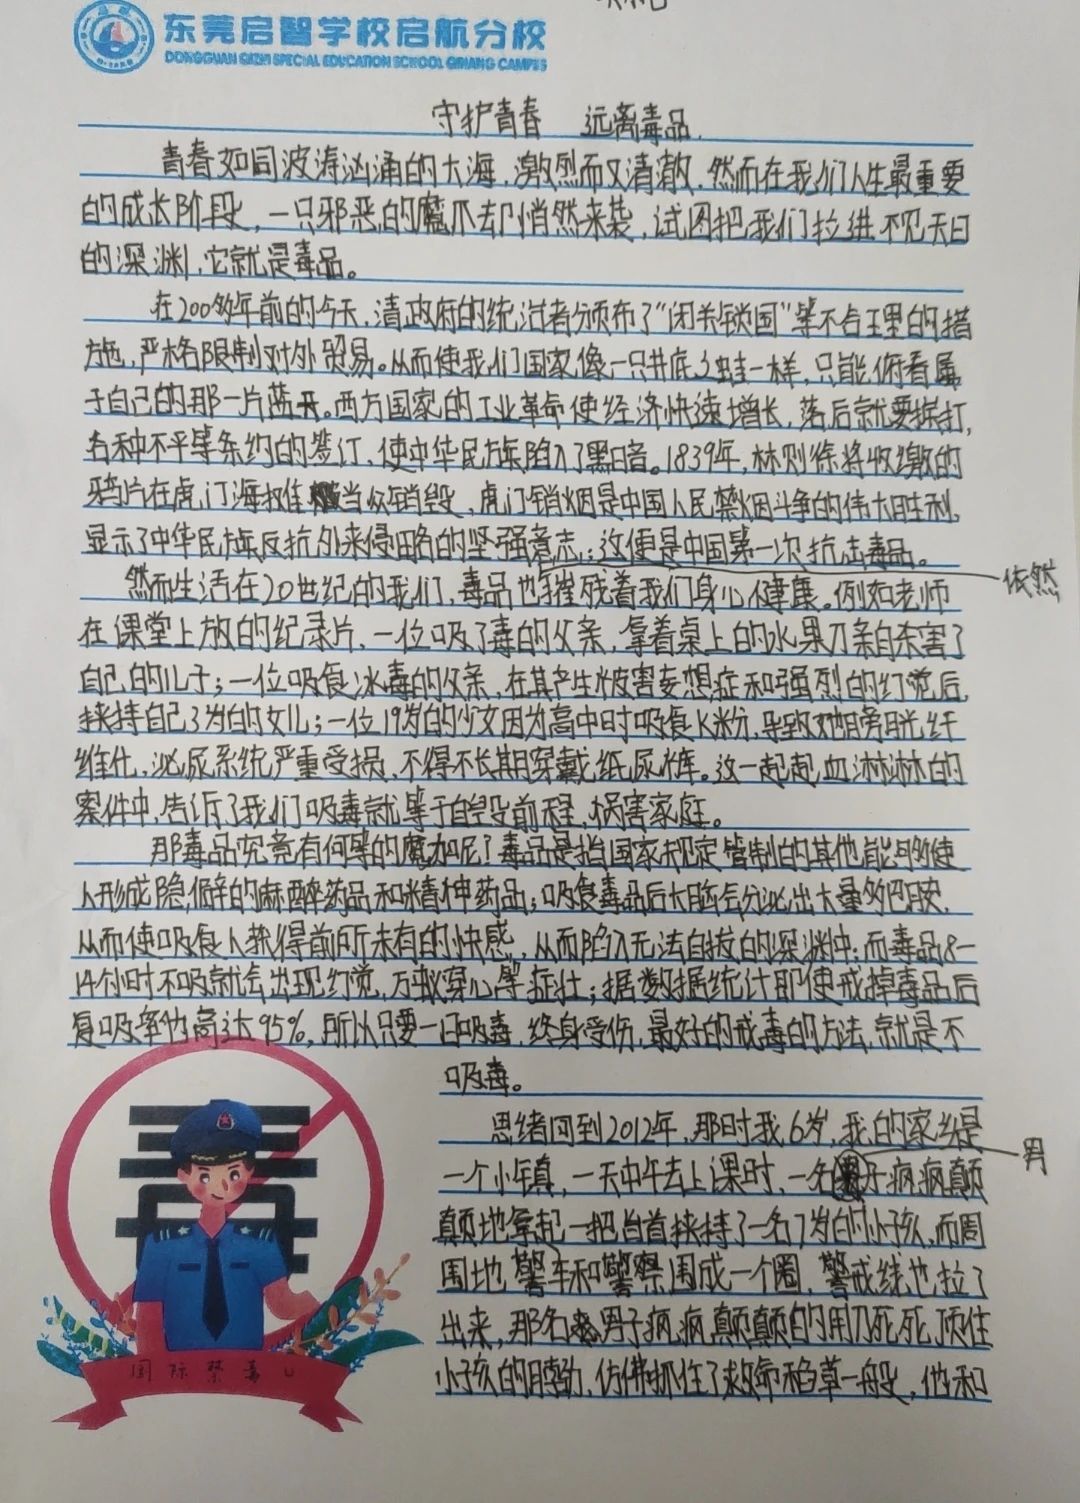 东莞启智学校启航分校
DONGGUAN QIZHI SPECIAL EDUCATION SCHOOL QIHANG CAMPUS
守护青春 远离毒品
青春如同波涛汹涌的大海,激烈而又清澈,然而在我们人生最重要
的成长阶段,一只邪恶的魔爪却悄然来袭,试图把我们拉进不见天日
的深渊,它就是毒品。
在200多年前的今天,清政府的统治者颁布了“闭关锁国”等不合理的措
施,严格限制对外贸易。从而使我们国家像一只井底之蛙一样,只能俯看属
于自己的那一片蓝天。西方国家的工业革命使经济快速增长,落后就要挨打,
各种不平等条约的签订,使中华民族陷入了黑暗。1839年,林则徐将收缴的
鸦片在虎门海滩当众销毁,虎门销烟是中国人民禁烟斗争的伟大胜利,
显示了中华民族反抗外来侵略的坚强意志,这便是中国第一次抗击毒品。
然而生活在20世纪的我们,毒品也依然摧残着我们身心健康。例如老师
在课堂上放的纪录片,一位吸了毒的父亲,拿着桌上的水果刀亲自杀害了
自己的儿子;一位吸食冰毒的父亲,在其产生被害妄想症和强烈的幻觉后,
挟持自己3岁的女儿;一位19岁的少女因为高中时吸食K粉,导致她膀胱纤
维化,泌尿系统严重受损,不得不长期穿戴纸尿裤。这一起起血淋淋的
案件中,告诉了我们吸毒就等于自毁前程,祸害家庭。
那毒品究竟有何等的魔力呢?毒品是指国家规定管制的其他能够使
人形成隐僻的麻醉药品和精神药品;吸食毒品后大脑会分泌出大量多巴胺,
从而使吸食人获得前所未有的快感,从而陷入无法自拔的深渊中;而毒品8-
14个小时不吸就会出现幻觉,万蚁穿心等症壮;据数据统计即使戒掉毒品后
复吸率也高达95%,所以只要一日吸毒,终身受伤,最好的戒毒的方法,就是不
吸毒。
思绪回到2012年,那时我6岁,我的家乡是
一个小镇,一天中午去上课时,一名男子疯疯颠
颠地拿起一把匕首挟持了一名7岁的小孩,而周
围地警车和警察围成一个圈,警戒线也拉了
出来,那名男子疯疯颠颠的用刀死死顶住
小孩的脖劲,仿佛抓住了救命稻草一般,他和
国际禁毒日